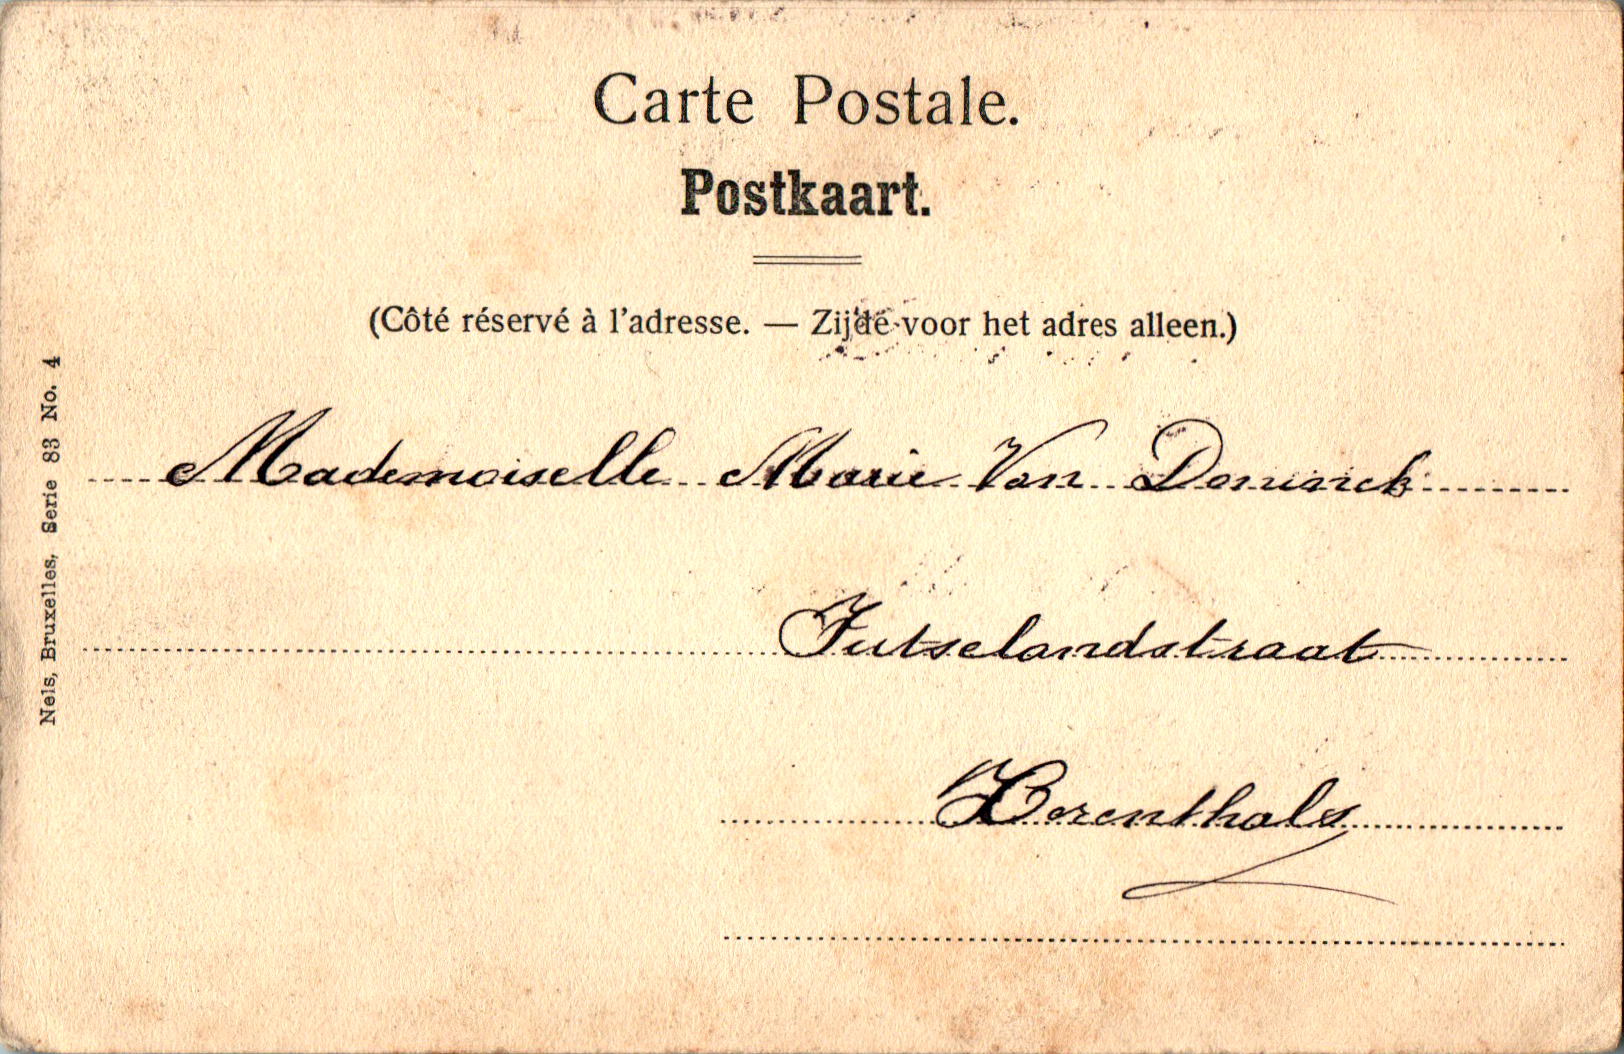 Carte Postale.
Postkaart.
(Côté réservé à l'adresse. — Zijde voor het adres alleen.)
Mademoiselle Marie Van Doninck
Futselandstraat
Herenthals
Nels, Bruxelles, Serie 83 No. 4